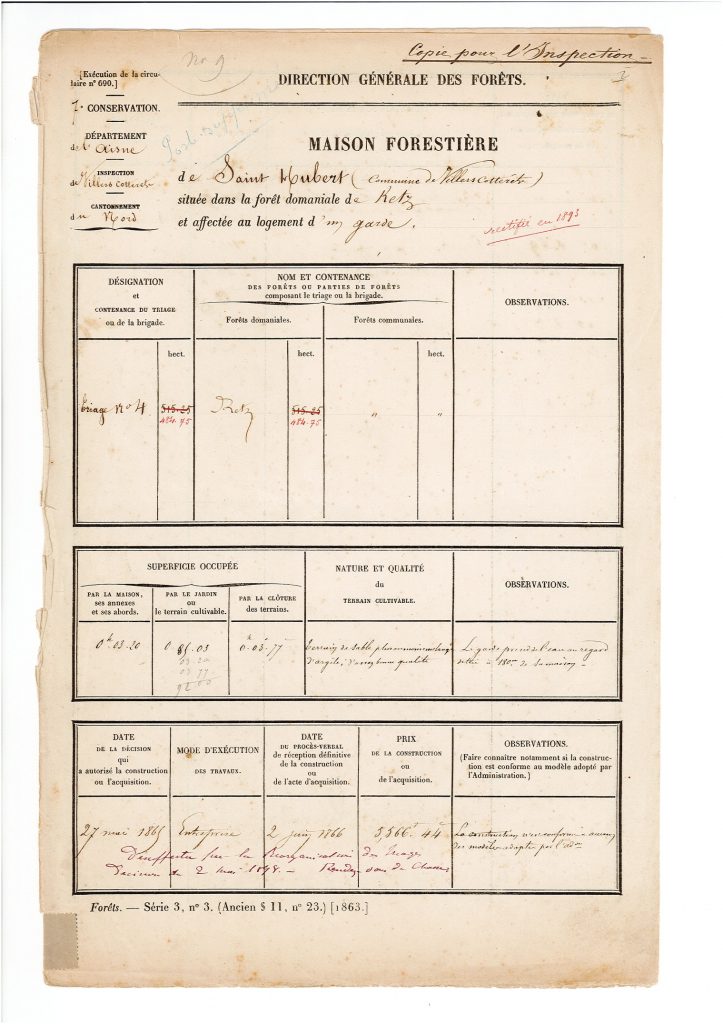 Copie pour l'Inspection
no 9
[Exécution de la circu-
laire n° 690.]
DIRECTION GÉNÉRALE DES FORÊTS.
7e CONSERVATION.
DÉPARTEMENT
de l'Aisne
INSPECTION
de Villers Cotterets
CANTONNEMENT
du Nord
MAISON FORESTIÈRE
de Saint Hubert (Commune de Villers Cotterets)
située dans la forêt domaniale de Retz
et affectée au logement d'un garde.
rectifié en 1893
DÉSIGNATION
et
CONTENANCE DU TRIAGE
ou de la brigade.
NOM ET CONTENANCE
DES FORÊTS OU PARTIES DE FORÊTS
composant le triage ou la brigade.
Forêts domaniales.
Forêts communales.
OBSERVATIONS.
hect.
hect.
hect.
Triage no 4
515.25
484.75
Retz
515.25
484.75
"
"
SUPERFICIE OCCUPÉE
PAR LA MAISON,
ses annexes
et ses abords.
PAR LE JARDIN
ou
le terrain cultivable.
PAR LA CLÔTURE
des terrains.
NATURE ET QUALITÉ
du
TERRAIN CULTIVABLE.
OBSERVATIONS.
0h.03.20
0 85.03
03 20
03 77
92 00
0h.03.77
Terrain de sable
d'argile, d'assez bonne qualité
Le garde prend de l'eau au regard
à 180m de sa maison
DATE
DE LA DÉCISION
qui
a autorisé la construction
ou l'acquisition.
MODE D'EXÉCUTION
DES TRAVAUX.
DATE
DU PROCÈS-VERBAL
de réception définitive
de la construction
ou
de l'acte d'acquisition.
PRIX
DE LA CONSTRUCTION
ou
de l'acquisition.
OBSERVATIONS.
(Faire connaître notamment si la construc-
tion est conforme au modèle adopté par
l'Administration.)
27 mai 1865
Entreprise
2 juin 1866
5,566f 44c
La construction n'est conforme à aucun
des modèles adoptés par l'adon
Désaffectée par la Réorganisation des triages
Décision du 2 mai 1898. - Rendez vous de Chasse
Forêts. — Série 3, n° 3. (Ancien § 11, n° 23.) [1863.]